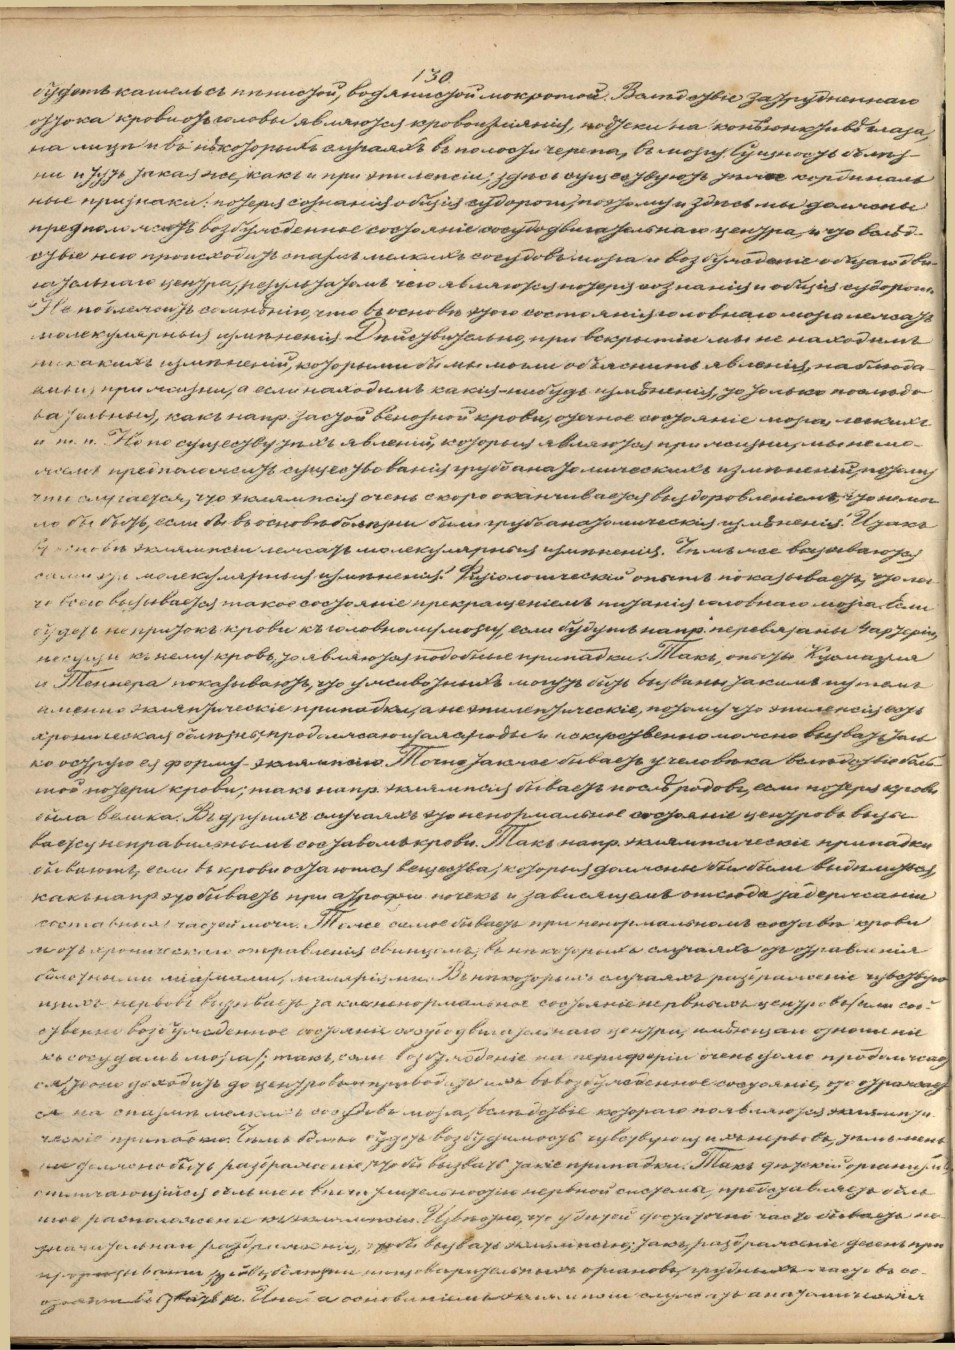 130.
будетъ кашель съ пѣнистой, водянистой мокротой. Вслѣдствіе затрудненнаго
оттока крови отъ головы являются кровоизліянія, подтеки на конъюнктивѣ глаза,
на лицѣ и въ нѣкоторыхъ случаяхъ въ полости черепа, въ мозгу. Сущность болѣз-
ни и тутъ такая же, какъ и при эпилепсіи; здѣсь существуютъ тѣже кординаль
ные признаки: потеря сознанія общія судороги, поэтому и здѣсь мы должны
предположить возбужденное состояніе сосудодвигательнаго центра, и что вслѣд-
ствіе него происходитъ спазмъ мелкихъ сосудовъ мозга и возбужденіе общаго дви-
гательнаго центра, результатомъ чего являются потеря сознанія и общія судороги.
Не подлежитъ сомнѣнію, что въ основѣ этого состоянія головнаго мозга лежатъ
молекулярныя измѣненія. Дѣйствительно, при вскрытіи мы не находимъ
никакихъ измѣненій, которыми бы мы могли объяснить явленія, наблюда-
емыя при жизни, а если находимъ какія-нибудь измѣненія, то только послѣдо
вательныя, какъ напр. застой венозной крови, отечное состояніе мозга, легкихъ
и т. п. Но по существу тѣхъ явленій, которыя являются при жизни, мы не мо-
жемъ предположить существованія грубо анатомическихъ измѣненій, потому
что случается, что эклямпсія очень скоро оканчивается выздоровленіемъ, что не мог
ло бы быть, если бы въ основѣ болѣзни были грубо анатомическія измѣненія. Итакъ
въ основѣ эклямпсіи лежатъ молекулярныя измѣненія. Чѣмъ же вызываются
сами эти молекулярныя измѣненія? Физіологическій опытъ показываетъ, что лег-
че всего вызывается такое состояніе прекращеніемъ питанія головнаго мозга. Если
будетъ не притокъ крови къ головному мозгу, если будутъ напр. перевязаны артеріи,
несущія къ нему кровь, то являются подобные припадки. Такъ, опыты Куссмауля
и Теннера показываютъ, что у животныхъ могутъ быть вызваны такимъ путемъ
именно эклямптическіе припадки, а не эпилептическіе, потому что эпилепсія есть
хроническая болѣзнь, продолжающаяся годы и искусственно можно вызвать толь
ко острую ея форму - эклямпсію. Точно также бываетъ у человѣка вслѣдствіе боль
шой потери крови; такъ напр. эклямпсія бываетъ послѣ родовъ, если потеря крови
была велика. Въ другихъ случаяхъ это ненормальное состояніе центровъ вызы
вается неправильнымъ составомъ крови. Такъ напр. эклямпсическіе припадки
бываютъ, если въ крови остаются вещества, которыя должны бы были выдѣлиться,
какъ напр. это бываетъ при атрофіи почекъ и зависящемъ отсюда задержаніи
составныхъ частей мочи. Тоже самое бываетъ при ненормальномъ составѣ крови
и отъ хроническаго отравленія свинцомъ, въ нѣкоторыхъ случаяхъ отъ отравленія
болотными міазмами, маляріями. Въ нѣкоторыхъ случаяхъ раздраженіе чувствую
щихъ нервовъ вызываетъ такое ненормальное состояніе нервныхъ центровъ (или соб-
ственно возбужденное состояніе сосудодвигательнаго центра, имѣющаго отношеніе
къ сосудамъ мозга); такъ, если возбужденіе на периферіи очень долго продолжает
ся, то оно доходитъ до центровъ и приводитъ ихъ въ возбужденное состояніе, что отражает
ся на спазмѣ мелкихъ сосудовъ мозга, вслѣдствіе котораго появляются эклямпти
ческіе припадки. Чѣмъ больше будетъ возбудимость чувствующихъ нервовъ, тѣмъ мень
ше должно быть раздраженіе, чтобы вызвать такіе припадки. Такъ дѣтскій организмъ,
отличающійся большею впечатлительностію нервной системы, представляетъ боль
шое расположеніе къ эклямпсіи. Извѣстно, что у дѣтей достаточно часто бываетъ не-
значительнаго раздраженія, чтобы вызвать эклямпсію; такъ, раздраженіе десенъ при
прорѣзываніи зубовъ, болѣзни пищеварительныхъ органовъ, грудныхъ часто въ со-
стояніи вызвать ее. Иногда основаніемъ эклямпсіи служатъ анатомическія